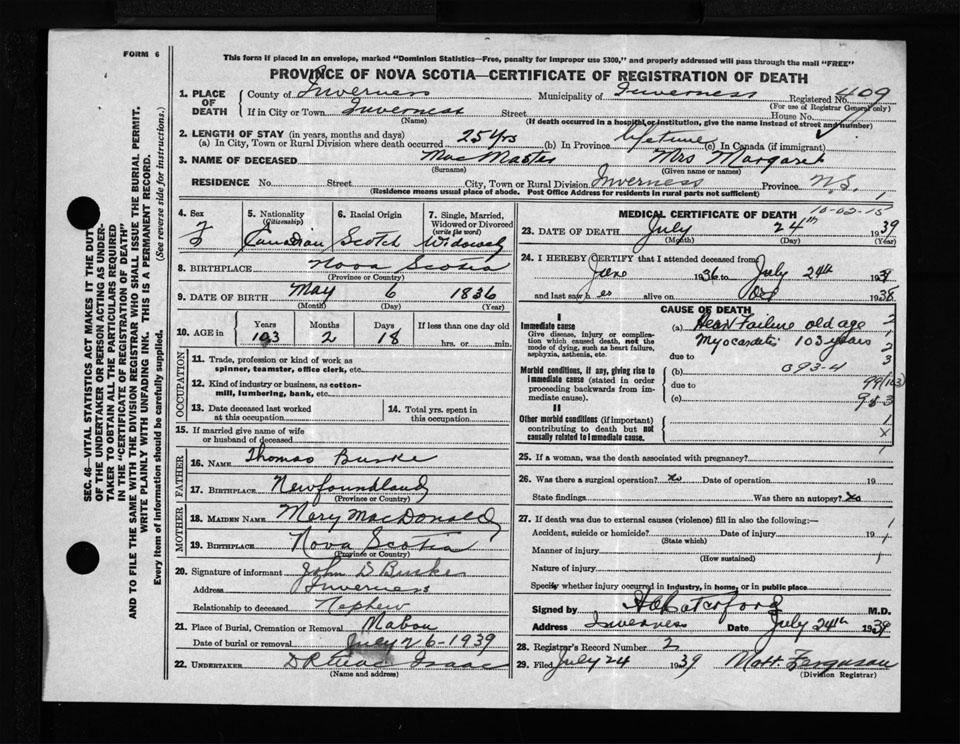 FORM 6
This form if placed in an envelope, marked "Dominion Statistics—Free, penalty for improper use $300," and properly addressed will pass through the mail "FREE"
PROVINCE OF NOVA SCOTIA—CERTIFICATE OF REGISTRATION OF DEATH
SEC. 46—VITAL STATISTICS ACT MAKES IT THE DUTY
OF THE UNDERTAKER OR PERSON ACTING AS UNDER-
TAKER TO OBTAIN ALL THE PARTICULARS REQUIRED
IN THE "CERTIFICATE OF REGISTRATION OF DEATH"
AND TO FILE THE SAME WITH THE DIVISION REGISTRAR WHO SHALL ISSUE THE BURIAL PERMIT.
WRITE PLAINLY WITH UNFADING INK. THIS IS A PERMANENT RECORD.
Every item of information should be carefully supplied. (See reverse side for instructions.)
1. PLACE OF DEATH County of Inverness Municipality of Inverness Registered No. 409
(For use of Registrar General only)
If in City or Town Inverness Street House No.
(Name) (If death occurred in a hospital or institution, give the name instead of street and number)
2. LENGTH OF STAY (in years, months and days)
(a) In City, Town or Rural Division where death occurred 25 yrs (b) In Province lifetime (c) In Canada (if immigrant)
3. NAME OF DECEASED MacMaster Mrs Margaret
(Surname) (Given name or names)
RESIDENCE No. Street City, Town or Rural Division Inverness Province N.S.
(Residence means usual place of abode. Post Office Address for residents in rural parts not sufficient)
4. Sex F
5. Nationality (Citizenship) Canadian
6. Racial Origin Scotch
7. Single, Married, Widowed or Divorced (write the word) Widowed
8. BIRTHPLACE Nova Scotia
(Province or Country)
9. DATE OF BIRTH May 6 1836
(Month) (Day) (Year)
10. AGE in Years 103 Months 2 Days 18 If less than one day old
hrs. or min.
OCCUPATION
11. Trade, profession or kind of work as
spinner, teamster, office clerk, etc.
12. Kind of industry or business, as cotton-
mill, lumbering, bank, etc.
13. Date deceased last worked
at this occupation
14. Total yrs. spent in
this occupation
15. If married give name of wife
or husband of deceased
FATHER
16. NAME Thomas Burke
17. BIRTHPLACE Newfoundland
(Province or Country)
MOTHER
18. MAIDEN NAME Mary MacDonald
19. BIRTHPLACE Nova Scotia
(Province or Country)
20. Signature of informant John D Burke
Address Inverness
Relationship to deceased Nephew
21. Place of Burial, Cremation or Removal Mabou
Date of burial or removal July 26-1939
22. UNDERTAKER Isaac
(Name and address)
MEDICAL CERTIFICATE OF DEATH
10-02-15
23. DATE OF DEATH July 24th 1939
(Month) (Day) (Year)
24. I HEREBY CERTIFY that I attended deceased from
June 1936 to July 24th 1939
and last saw her alive on 1938
CAUSE OF DEATH
I
Immediate cause
Give disease, injury or complica-
tion which caused death, not the
mode of dying, such as heart failure,
asphyxia, asthenia, etc.
(a) Heart Failure old age
103 years
due to
Morbid conditions, if any, giving rise to
immediate cause (stated in order
proceeding backwards from im-
mediate cause).
(b) 093-4
due to
(c)
II
Other morbid conditions (if important)
contributing to death but not
causally related to immediate cause.
25. If a woman, was the death associated with pregnancy?
26. Was there a surgical operation? No Date of operation 19
State findings Was there an autopsy? No
27. If death was due to external causes (violence) fill in also the following:—
Accident, suicide or homicide? Date of injury 19
(State which)
Manner of injury
(How sustained)
Nature of injury
Specify whether injury occurred in industry, in home, or in public place
Signed by M.D.
Address Inverness Date July 24th 1939
28. Registrar's Record Number 2
29. Filed July 24 1939 Matt. Ferguson
(Division Registrar)